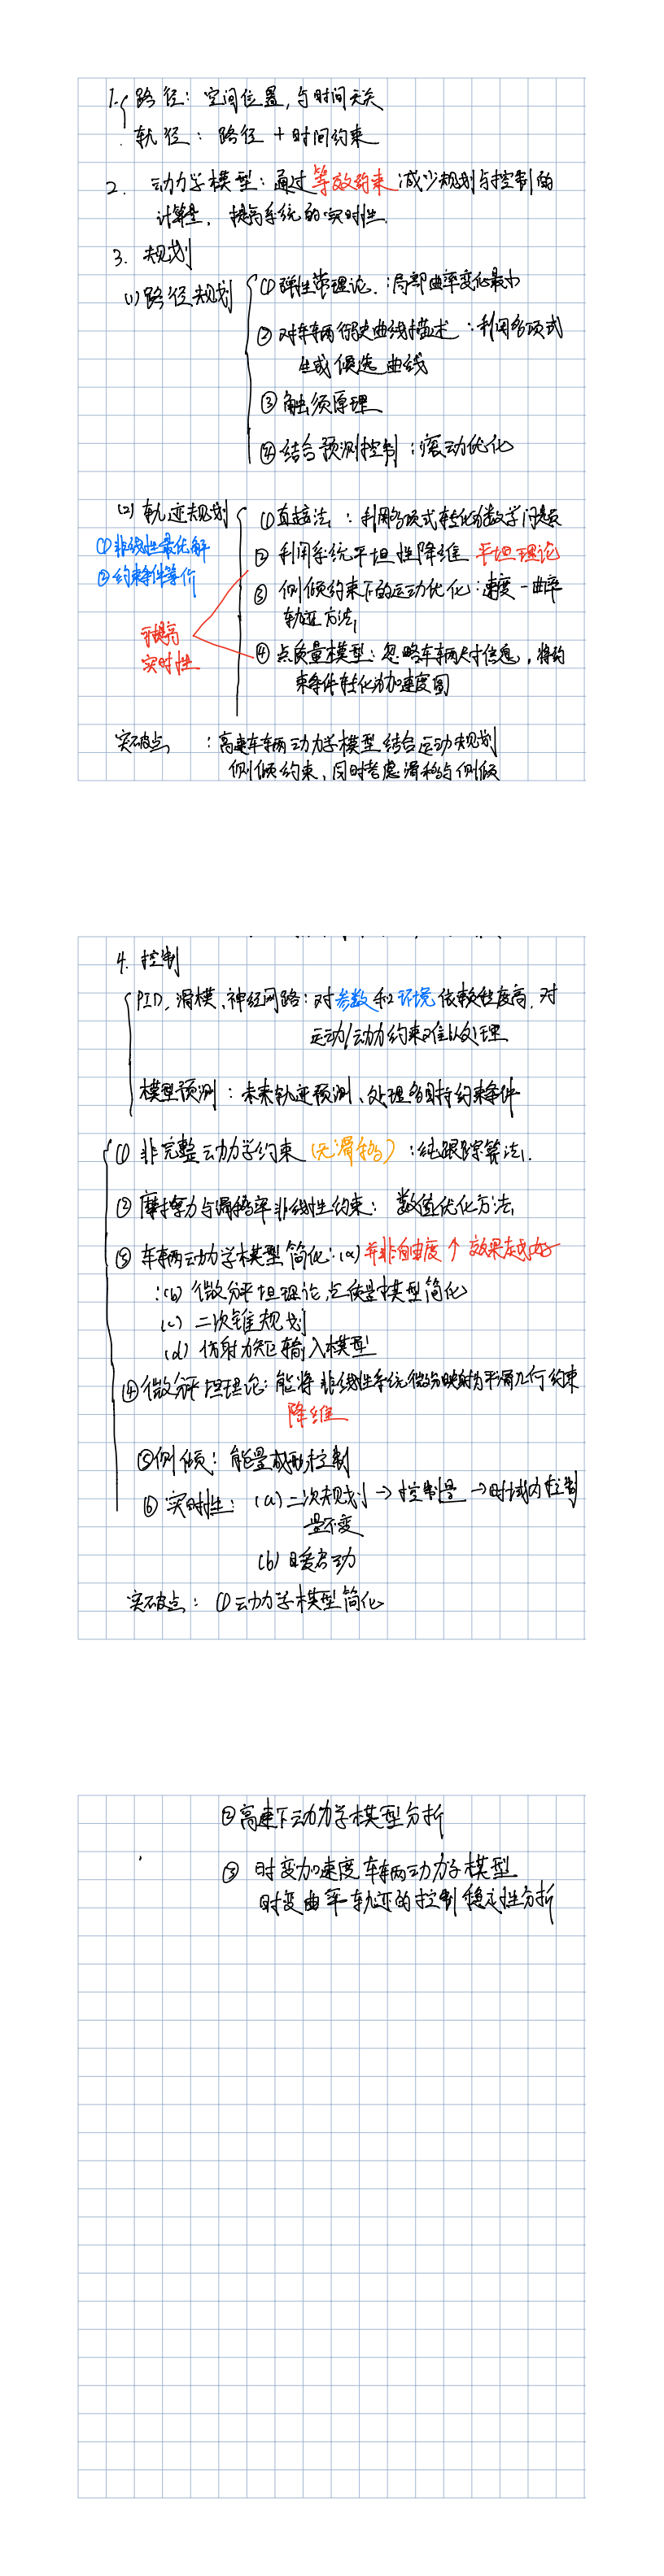 1. 路径：空间位置，与时间无关
轨迹：路径 + 时间约束
2. 动力学模型：通过等效约束 减少规划与控制的
计算量，提高系统的实时性.
3. 规划
(1)路径规划
①弹性带理论：局部曲率变化最小
②对车辆行驶曲线描述：利用多项式
生成候选曲线
③触须原理
④结合预测控制：滚动优化
(2)轨迹规划
①非线性最优解
②约束条件等价
可提高
实时性
①直接法：利用多项式转化为数学问题
②利用系统平坦性降维 平坦理论
③侧倾约束下的运动优化：速度－曲率
轨迹方法
④点质量模型：忽略车辆尺寸信息，将约
束条件转化为加速度圆
突破点：高速车辆动力学模型结合运动规划
侧倾约束，同时考虑滑移与侧倾
4. 控制
PID、滑模、神经网络：对参数和环境依赖程度高，对
运动/动力约束难以处理
模型预测：未来轨迹预测、处理多目标约束条件
①非完整动力学约束（无滑移）：纯跟踪算法.
②摩擦力与滑移率非线性约束：数值优化方法
③车辆动力学模型简化：(a)并非自由度↑效果越好
：(b)微分平坦理论，点质量模型简化
(c)二次锥规划
(d)仿射力矩输入模型
④微分平坦理论：能将非线性系统微分映射为平滑几何约束
降维
⑤侧倾：能量成形控制
⑥实时性：(a)二次规划→控制量→时域内控制
量不变
(b)暖启动
突破点：①动力学模型简化
②高速下动力学模型分析
③时变加速度车辆动力学模型
时变曲率轨迹的控制稳定性分析